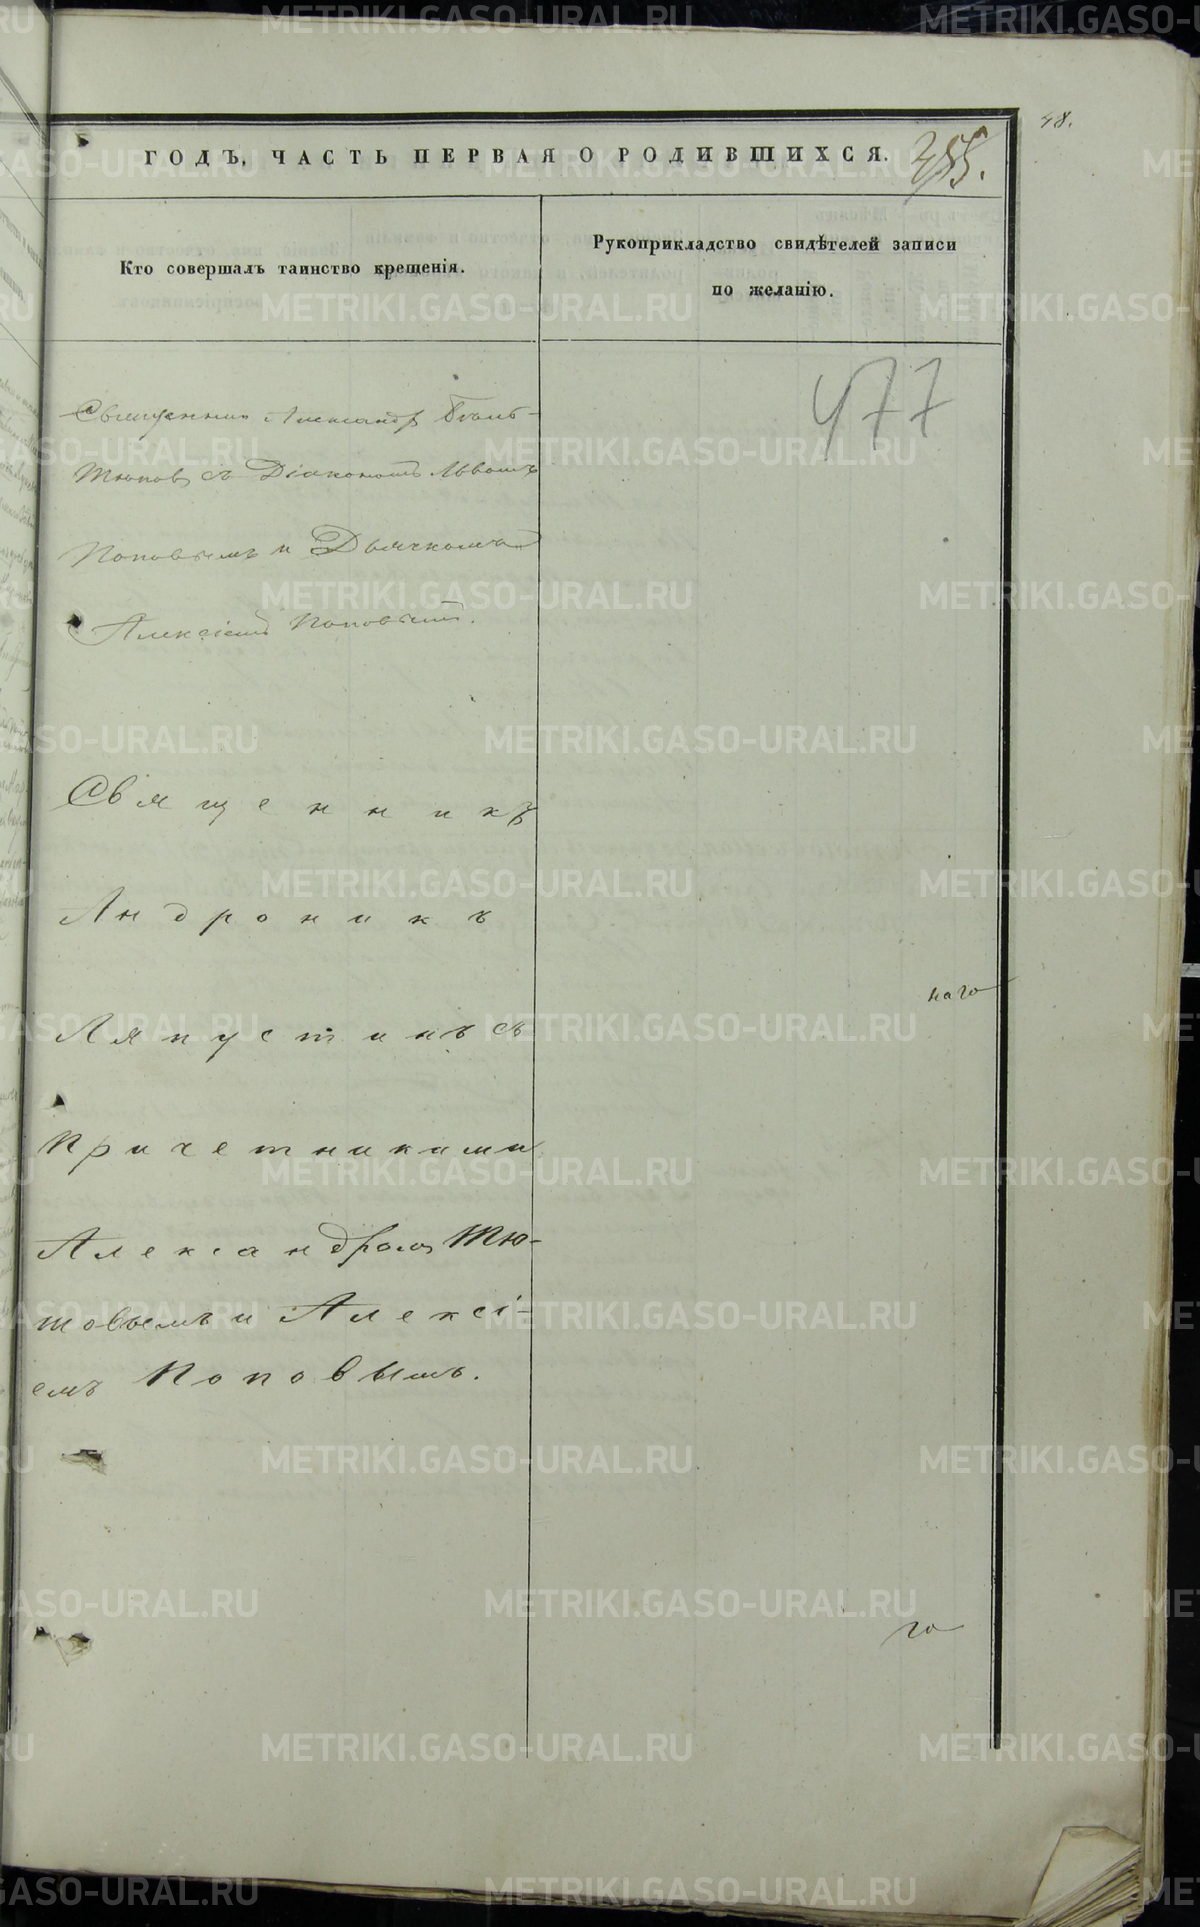 48.
ГОДЪ, ЧАСТЬ ПЕРВАЯ О РОДИВШИХСЯ.
355.
Кто совершалъ таинство крещенія.
Рукоприкладство свидѣтелей записи
по желанію.
477
Священник Александр
с Діакономъ Львомъ
Поповымъ и Дьячкомъ
Алексіемъ Поповымъ.
Священникъ
Андроникъ
наго
Ляпустинъ съ
Причетниками
Александромъ Тю-
товымъ и Алексі-
емъ Поповымъ.
го
METRIKI.GASO-URAL.RU